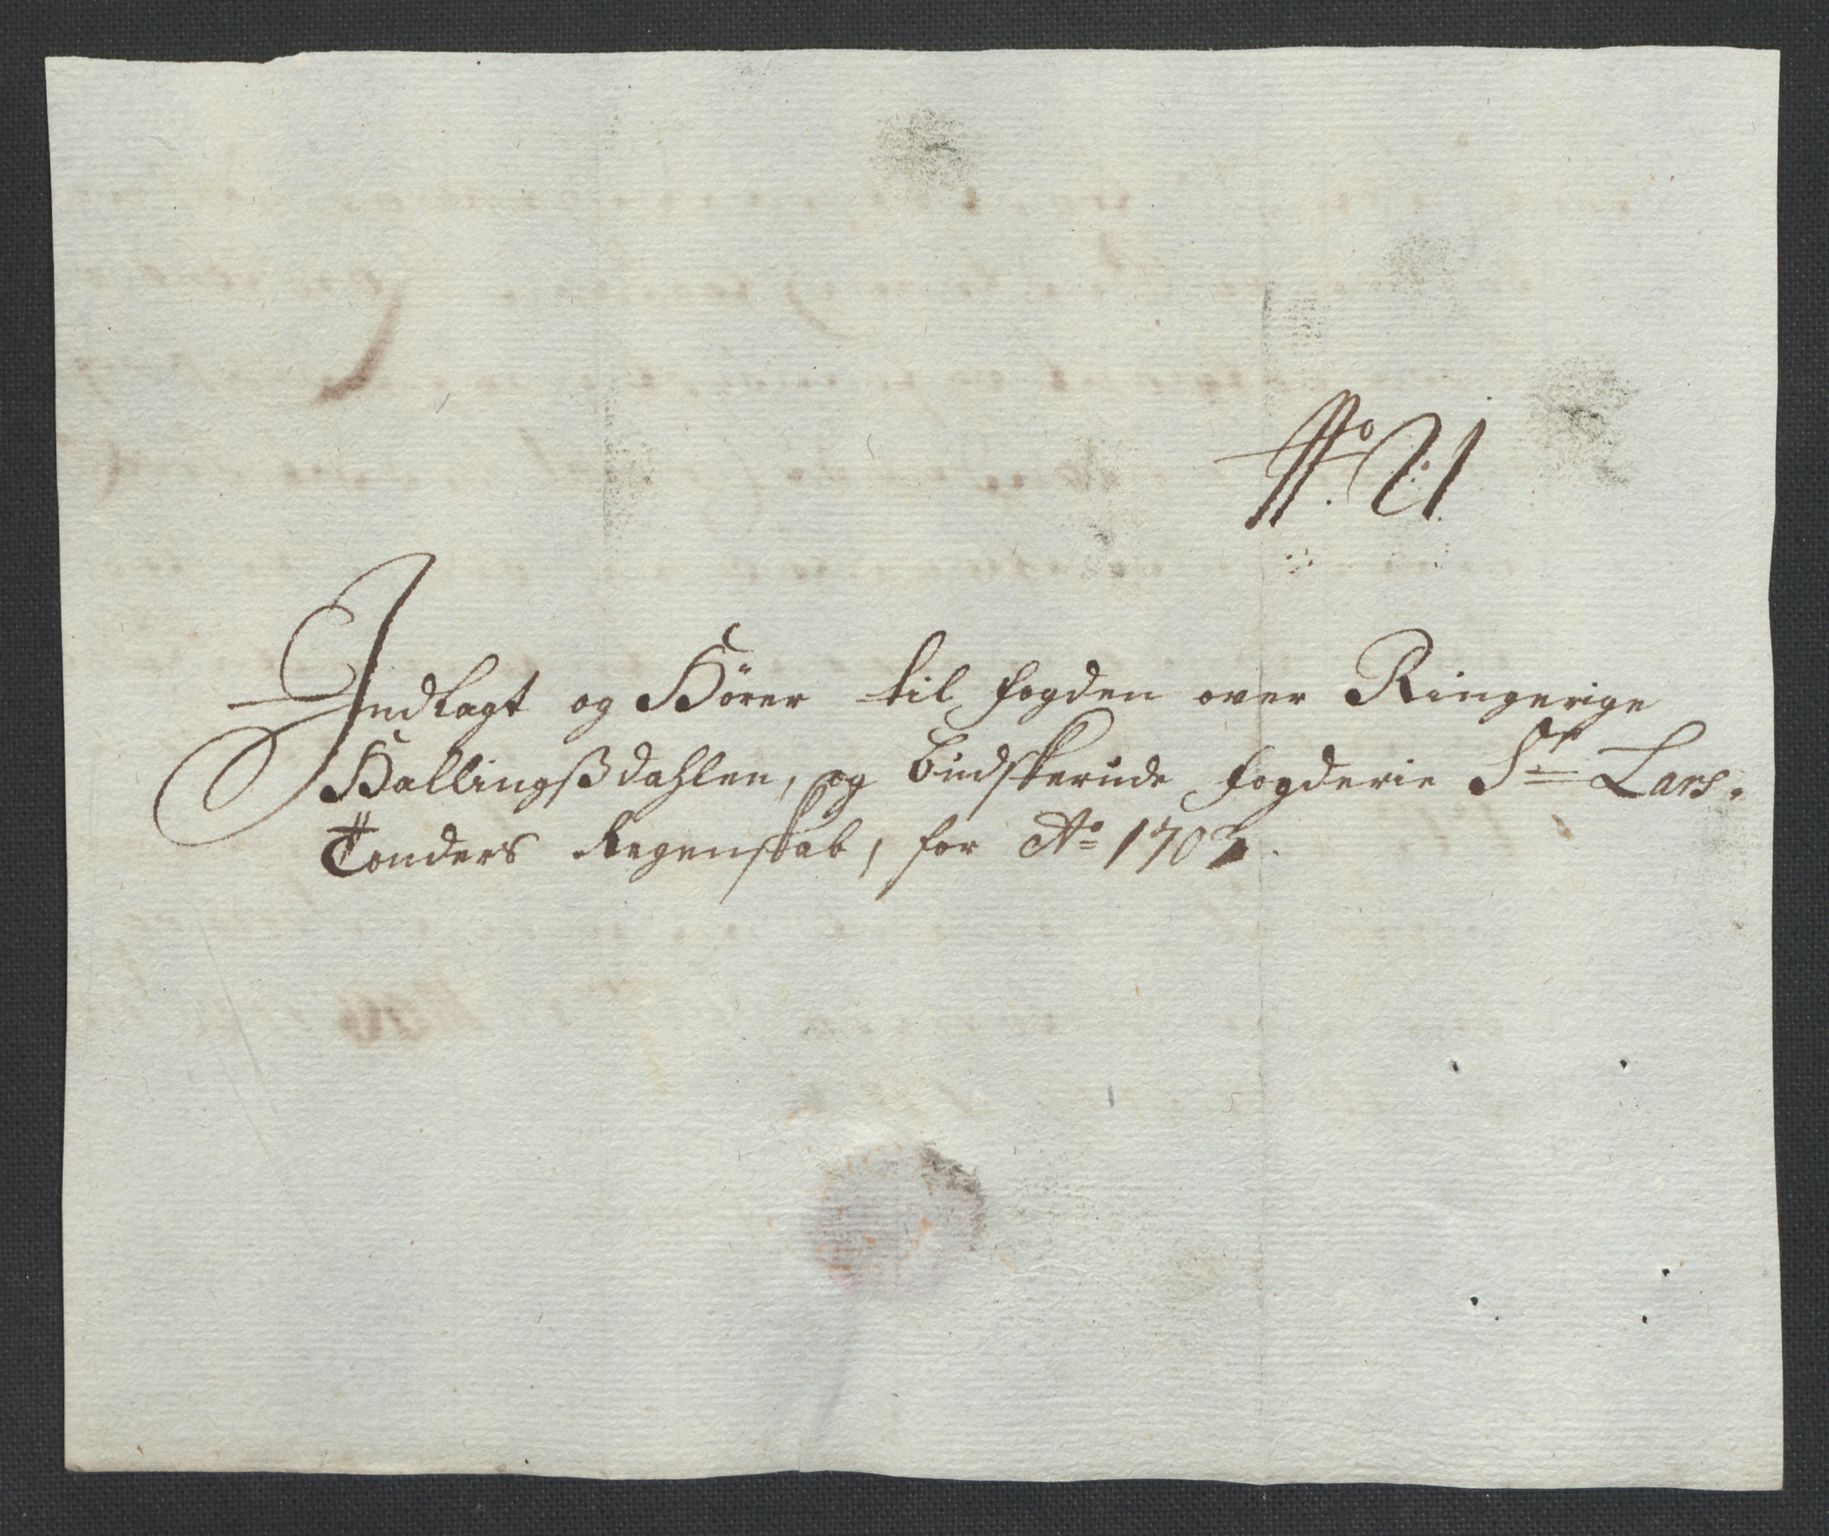 No: 21.
Indlagt og Hörer til fogden over Ringerige
Hallingßdahlen, og Budskerude fogderie Sr Lars
Tonders Regenskab, for Ao 1703.